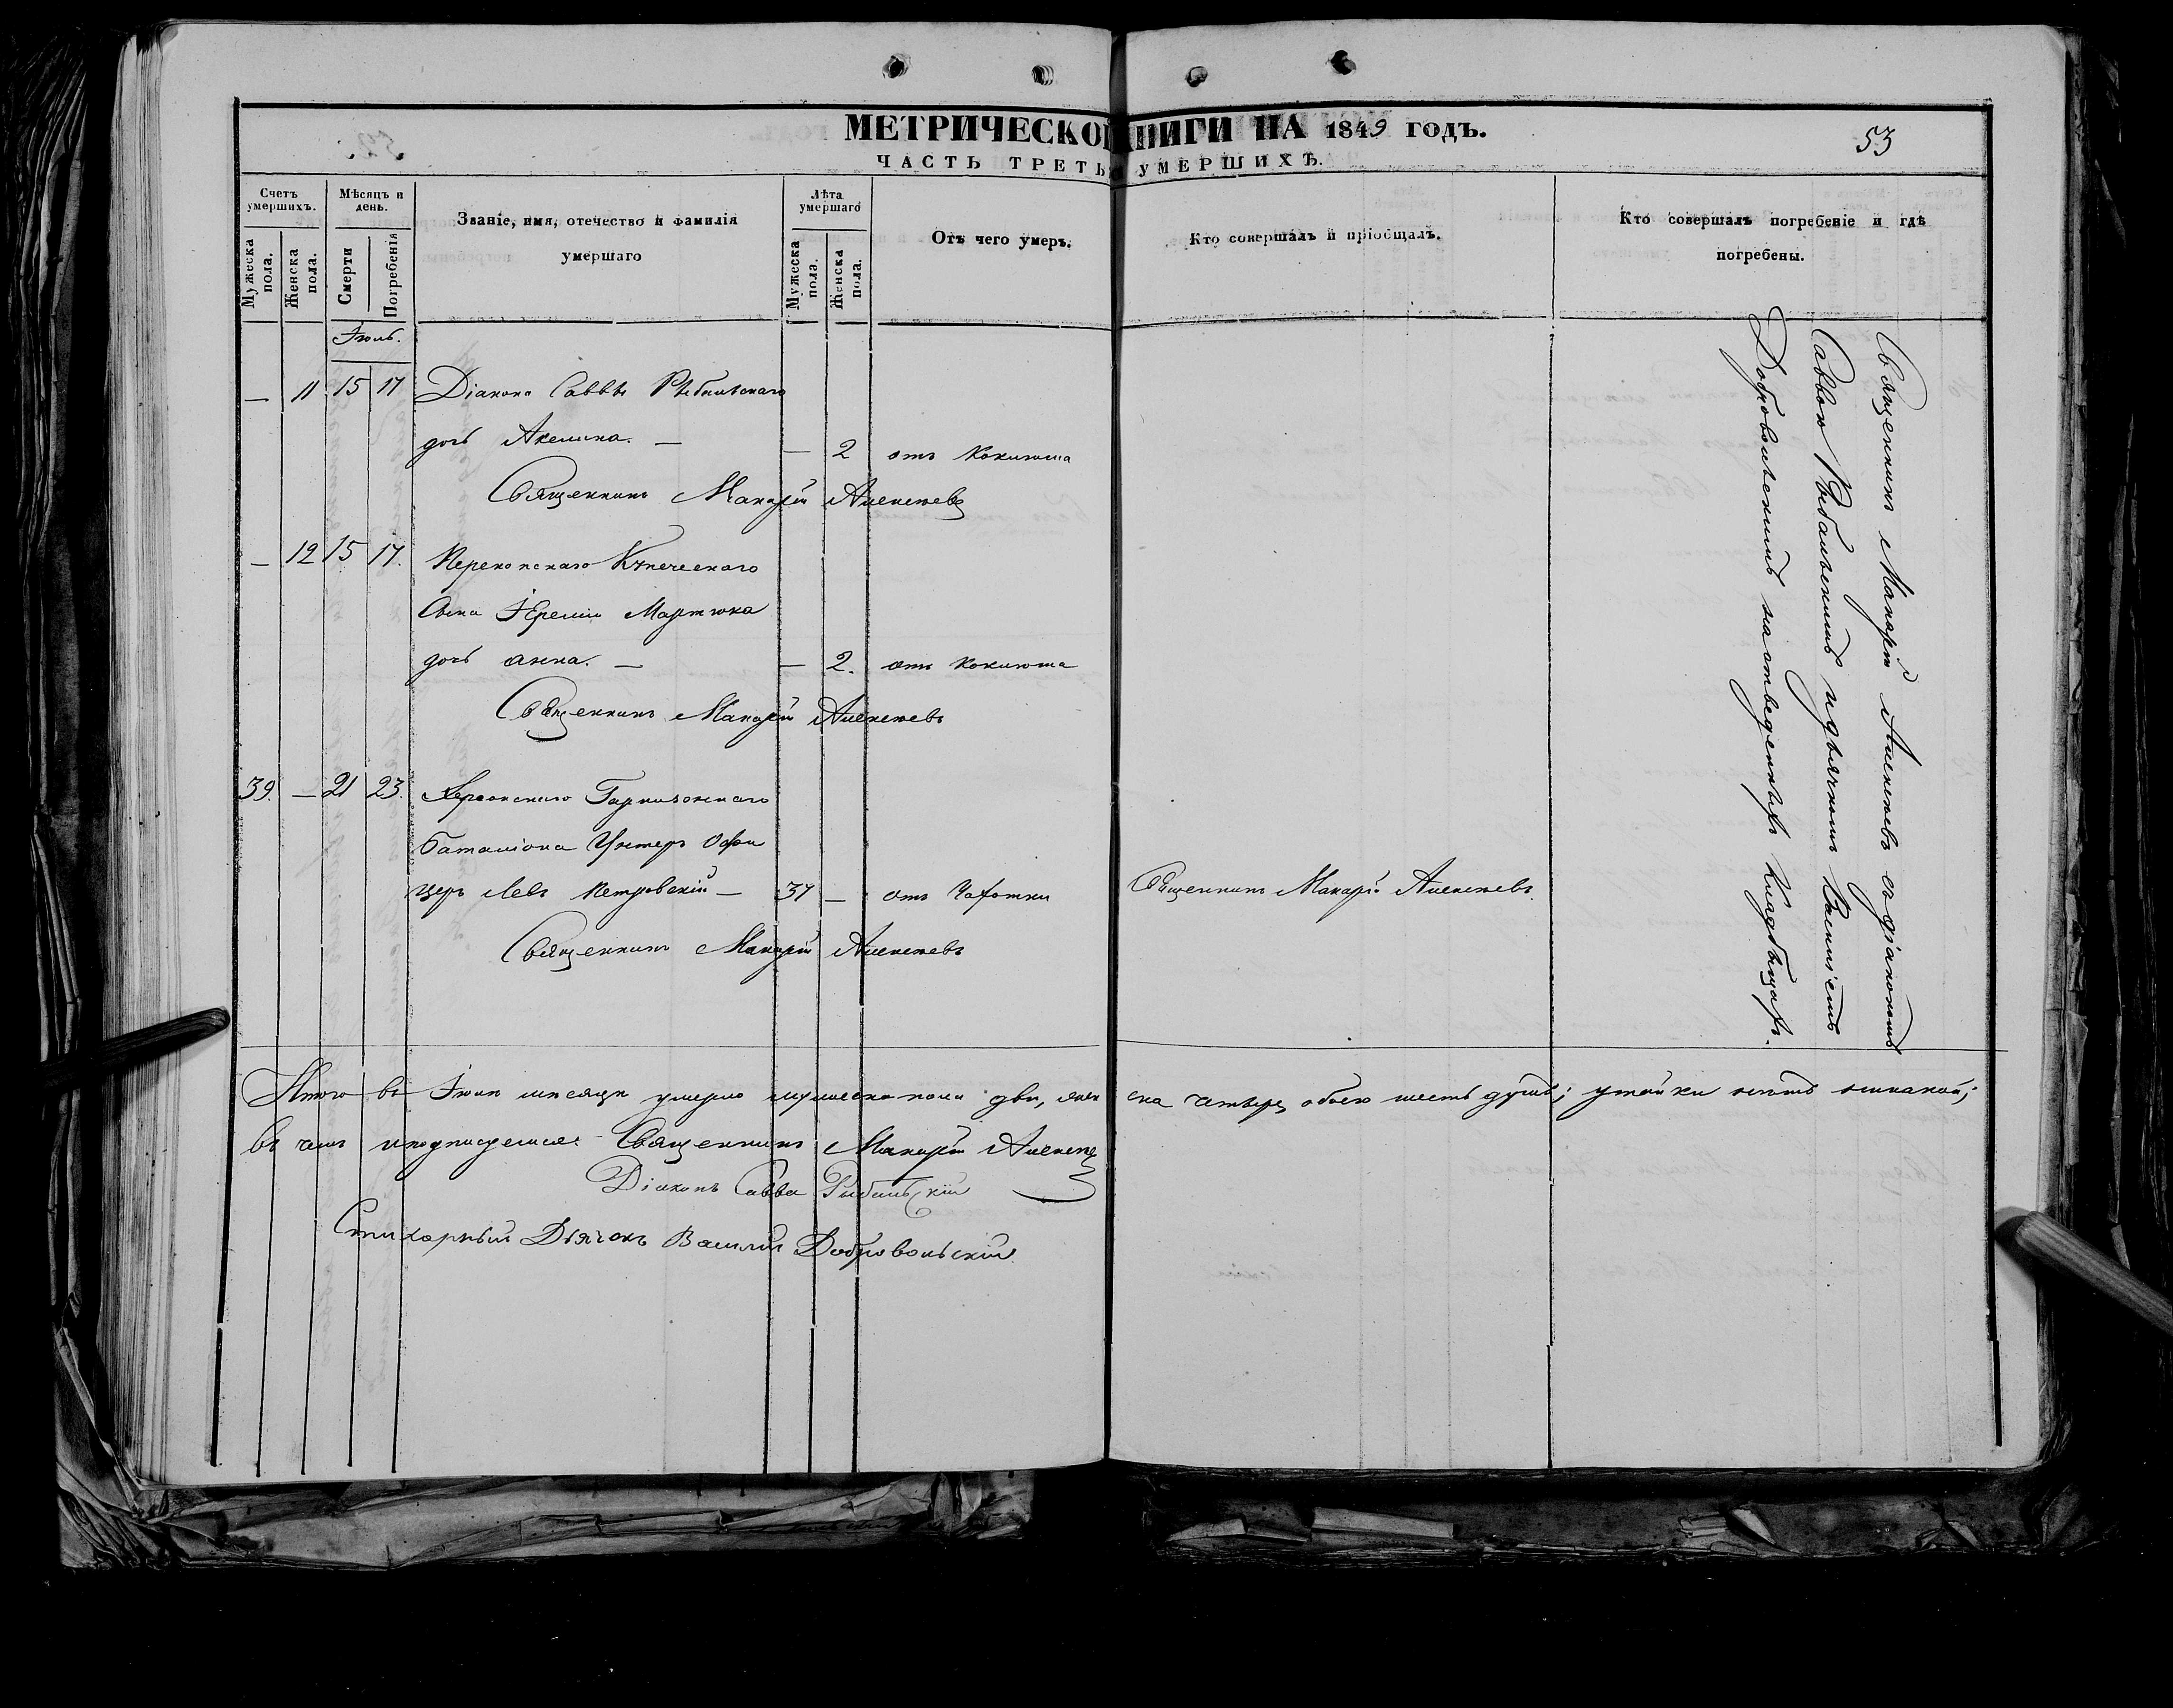 МЕТРИЧЕСКОЙ КНИГИ НА 1849 ГОДЪ.
53
ЧАСТЬ ТРЕТЬЯ УМЕРШИХЪ.
Счетъ умершихъ.
Мужеска пола.
Женска пола.
Мѣсяцъ и день.
Смерти
Погребенія
Званіе, имя, отечество и фамилія умершаго
Лѣта умершаго
Мужеска пола.
Женска пола.
Отъ чего умеръ.
Кто совершалъ и пріобщалъ.
Кто совершалъ погребеніе и гдѣ погребены.
— 11 15 17 Діакона Саввы Рыбальскаго
дочь Акелина. — — 2 отъ Коклюша
Священникъ Макарій Алексѣевъ
— 12 15 17. Перекопскаго Купеческаго
Сына Іереміи
дочь Анна. — — 2. отъ Коклюша
Священникъ Макарій Алексѣевъ
39. — 21 23. Херсонскаго Гарнизоннаго
Баталіона Унтеръ Офи
церъ Левъ Петровскій — 37 — отъ Чахотки Священникъ Макарій Алексѣевъ.
Священникъ Макарій Алексѣевъ
Священникъ Макарій Алексѣевъ съ діакономъ
Саввою Рыбальскимъ и дьячкомъ Василіемъ
Добровольскимъ на отведенныхъ Кладбищахъ.
Итого въ мѣсяцѣ умерло мужеска пола два, женска четыре, обоего шесть душъ; утайки нѣтъ никакой;
въ чемъ и подписуемся: Священникъ Макарій Алексѣевъ
Діаконъ Савва Рыбальскій
Стихарный Дьячокъ Василій Добровольскій